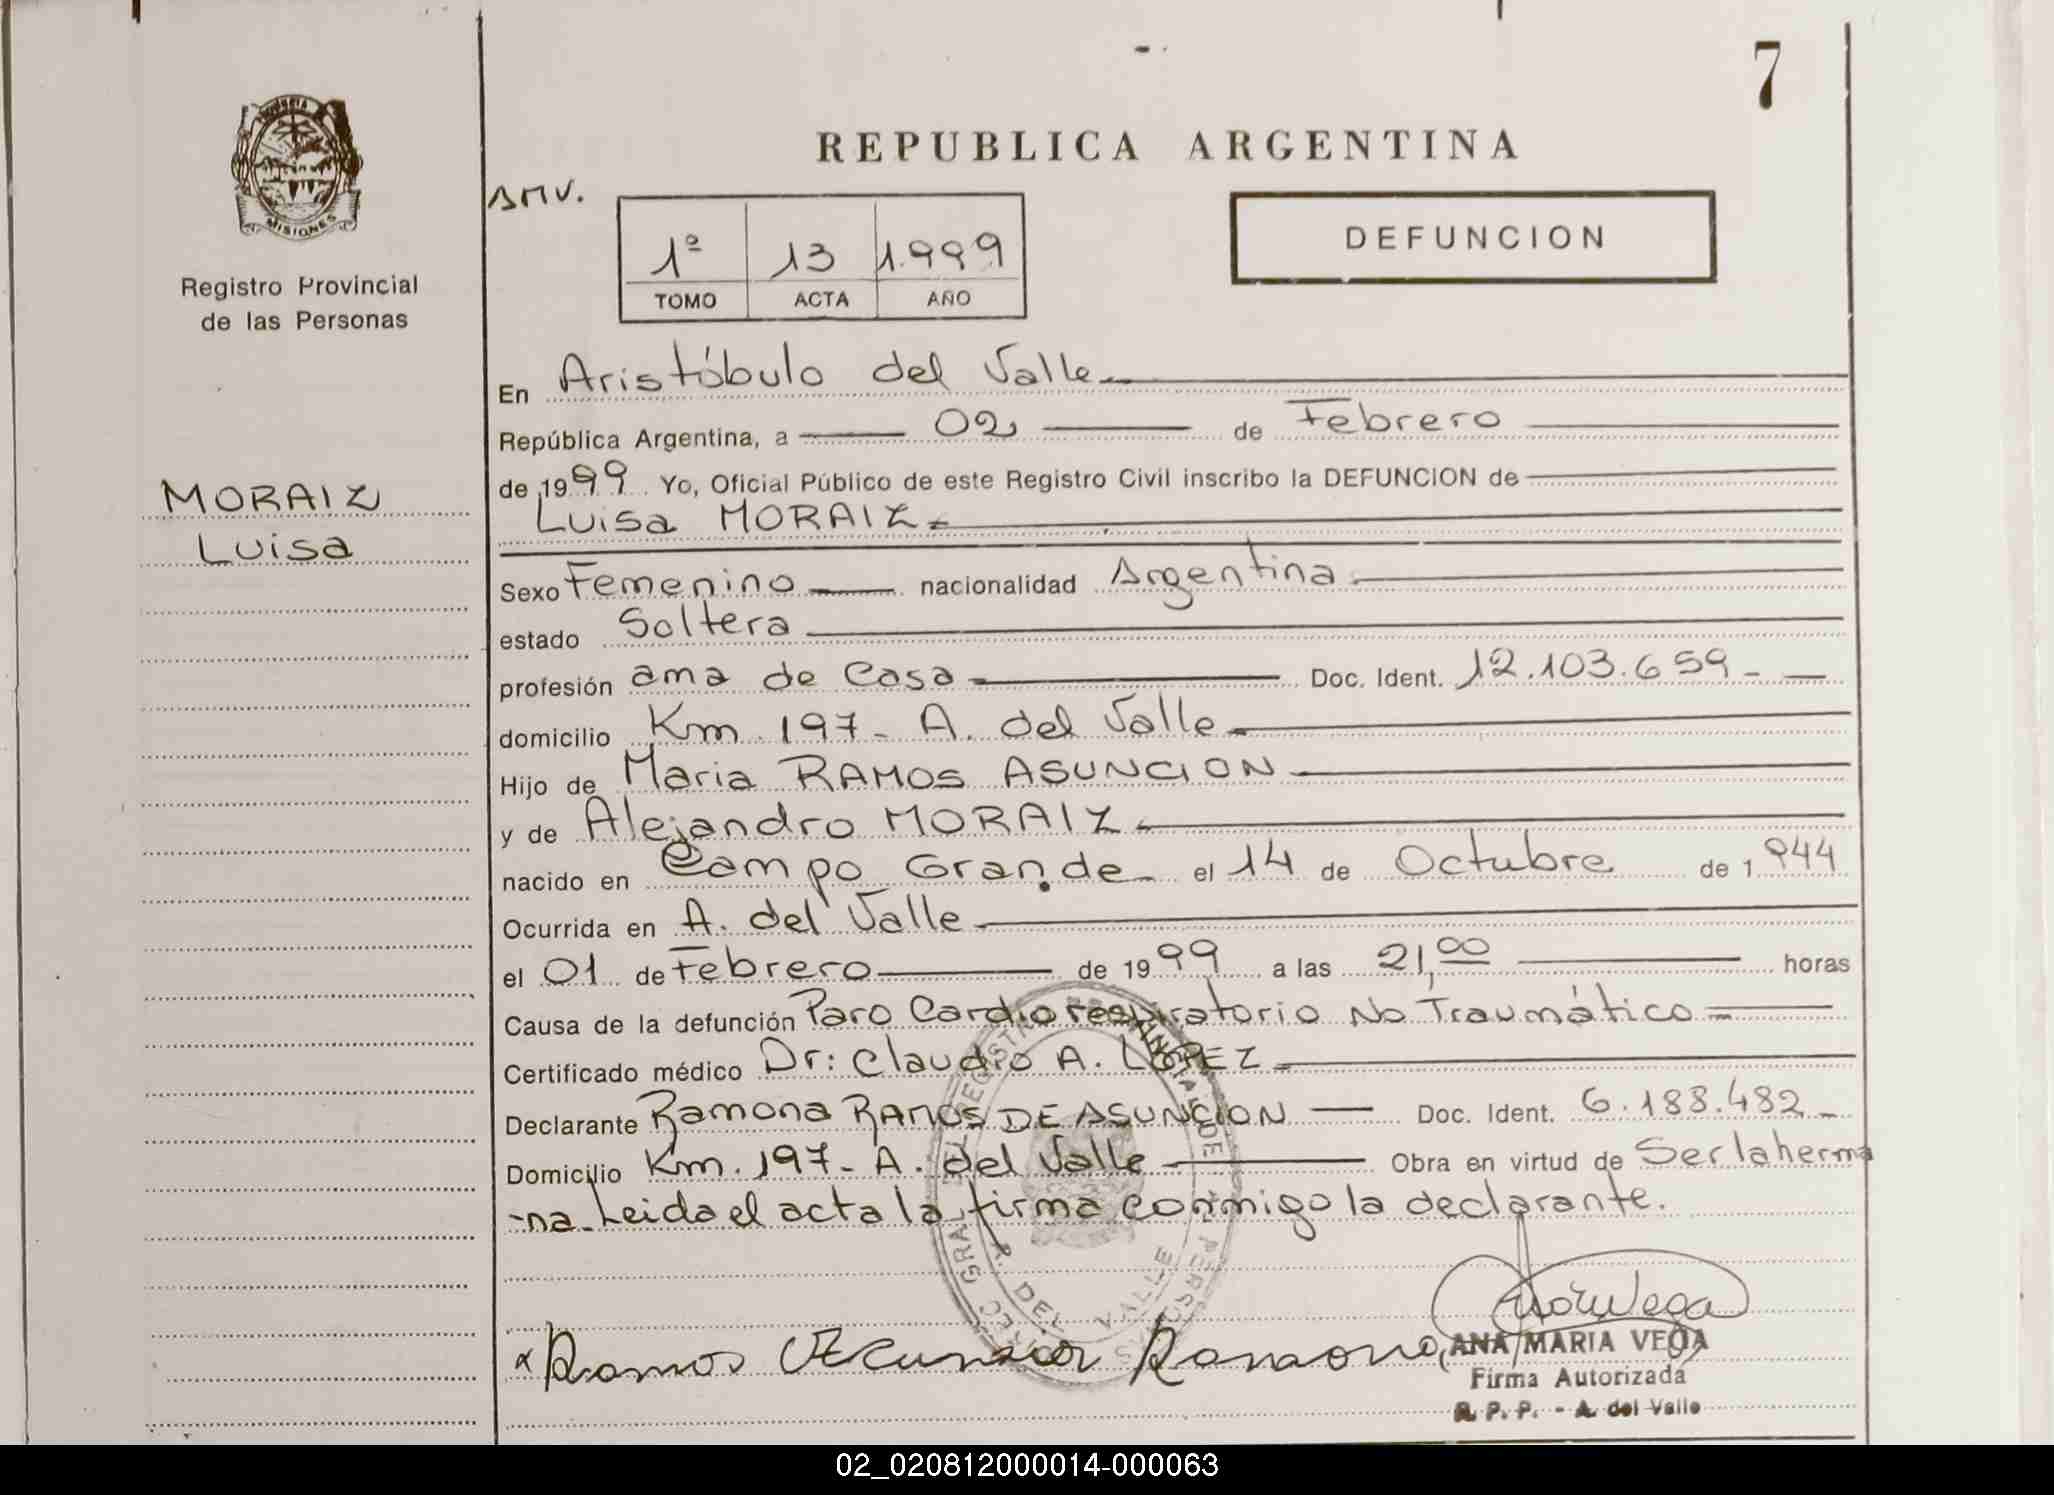 7
REPUBLICA ARGENTINA
MISIONES
Registro Provincial
de las Personas
AMV.
1º 13 1.999
TOMO ACTA AÑO
DEFUNCION
MORAIZ
Luisa
En Aristóbulo del Valle
República Argentina, a 02 de Febrero
de 1999 Yo, Oficial Público de este Registro Civil inscribo la DEFUNCION de
Luisa MORAIZ
Sexo Femenino nacionalidad Argentina
estado Soltera
profesión ama de Casa Doc. Ident. 12.103.659-
domicilio Km. 197- A. del Valle
Hijo de Maria RAMOS ASUNCION
y de Alejandro MORAIZ
nacido en Campo Grande el 14 de Octubre de 1944
Ocurrida en A. del Valle
el 01 de Febrero de 1999 a las 21,00 horas
Causa de la defunción Paro Cardiorespiratorio No Traumático
Certificado médico Dr: Claudio A. LOPEZ
Declarante Ramona RAMOS DE ASUNCION Doc. Ident. 6.188.482-
Domicilio Km. 197- A. del Valle Obra en virtud de Ser la herma
-na. Leida el acta la firma conmigo la declarante.
A. DEL VALLE
Ramos Ramona
ANA MARIA VEGA
Firma Autorizada
R. P. P. - A. del Valle
02_020812000014-000063